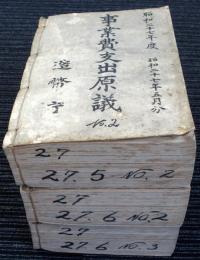 昭和二十七年度
昭和二十七年五月分
事業費支出原議
No.2
造幣庁
27
27.5 NO.2
27
27.6 NO.2
27
27.6 NO.3